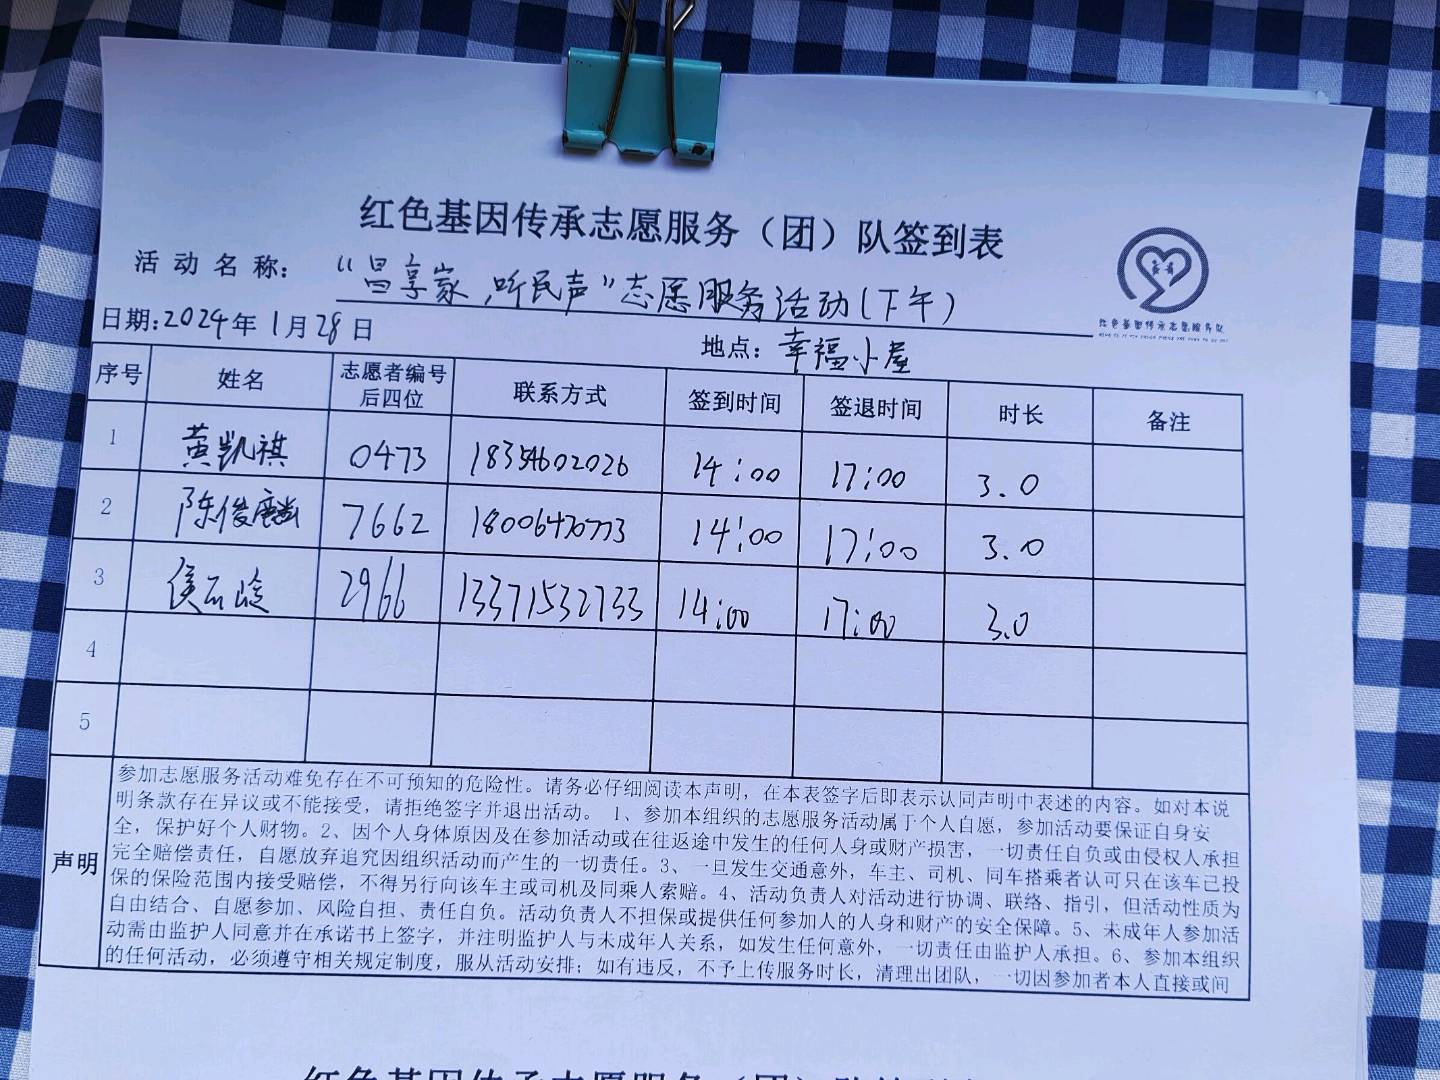 红色基因传承志愿服务（团）队签到表
活动名称： “昌享家，听民声”志愿服务活动（下午）
红色基因传承志愿服务队
日期：2024年1月28日 地点：幸福小屋
序号 姓名 志愿者编号后四位 联系方式 签到时间 签退时间 时长 备注
1 黄凯祺 0473 18354602026 14:00 17:00 3.0
2 陈俊麟 7662 18006470773 14:00 17:00 3.0
3 侯 2966 13371532733 14:00 17:00 3.0
4
5
声明
参加志愿服务活动难免存在不可预知的危险性。请务必仔细阅读本声明，在本表签字后即表示认同声明中表述的内容。如对本说
明条款存在异议或不能接受，请拒绝签字并退出活动。 1、参加本组织的志愿服务活动属于个人自愿，参加活动要保证自身安
全，保护好个人财物。2、因个人身体原因及在参加活动或在往返途中发生的任何人身或财产损害，一切责任自负或由侵权人承担
完全赔偿责任，自愿放弃追究因组织活动而产生的一切责任。3、一旦发生交通意外，车主、司机、同车搭乘者认可只在该车已投
保的保险范围内接受赔偿，不得另行向该车主或司机及同乘人索赔。4、活动负责人对活动进行协调、联络、指引，但活动性质为
自由结合、自愿参加、风险自担、责任自负。活动负责人不担保或提供任何参加人的人身和财产的安全保障。5、未成年人参加活
动需由监护人同意并在承诺书上签字，并注明监护人与未成年人关系，如发生任何意外，一切责任由监护人承担。6、参加本组织
的任何活动，必须遵守相关规定制度，服从活动安排；如有违反，不予上传服务时长，清理出团队，一切因参加者本人直接或间
红色基因传承志愿服务（团）队签到表